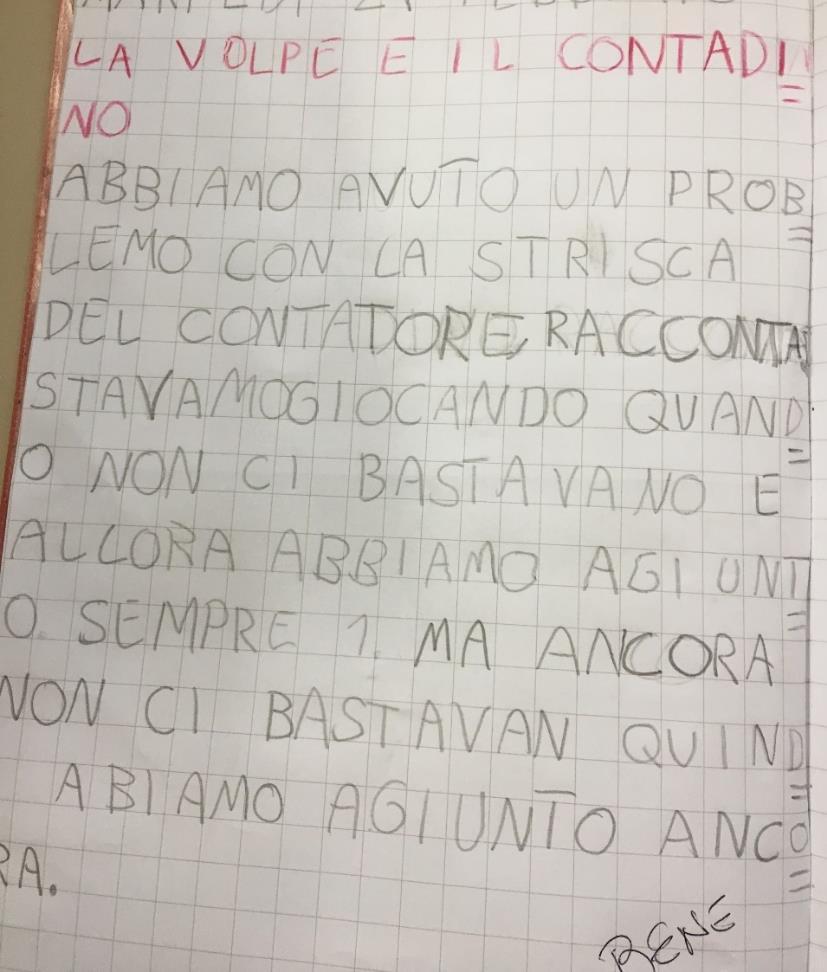 LA VOLPE E IL CONTADI=
NO
ABBIAMO AVUTO UN PROB=
LEMO CON LA STRISCA
DEL CONTADORE, RACCONTA
STAVAMOGIOCANDO QUAND=
O NON CI BASTAVANO E
ALLORA ABBIAMO AGIUNT=
O SEMPRE 1. MA ANCORA
NON CI BASTAVAN QUIND=
ABIAMO AGIUNTO ANCO=
RA.
RENE